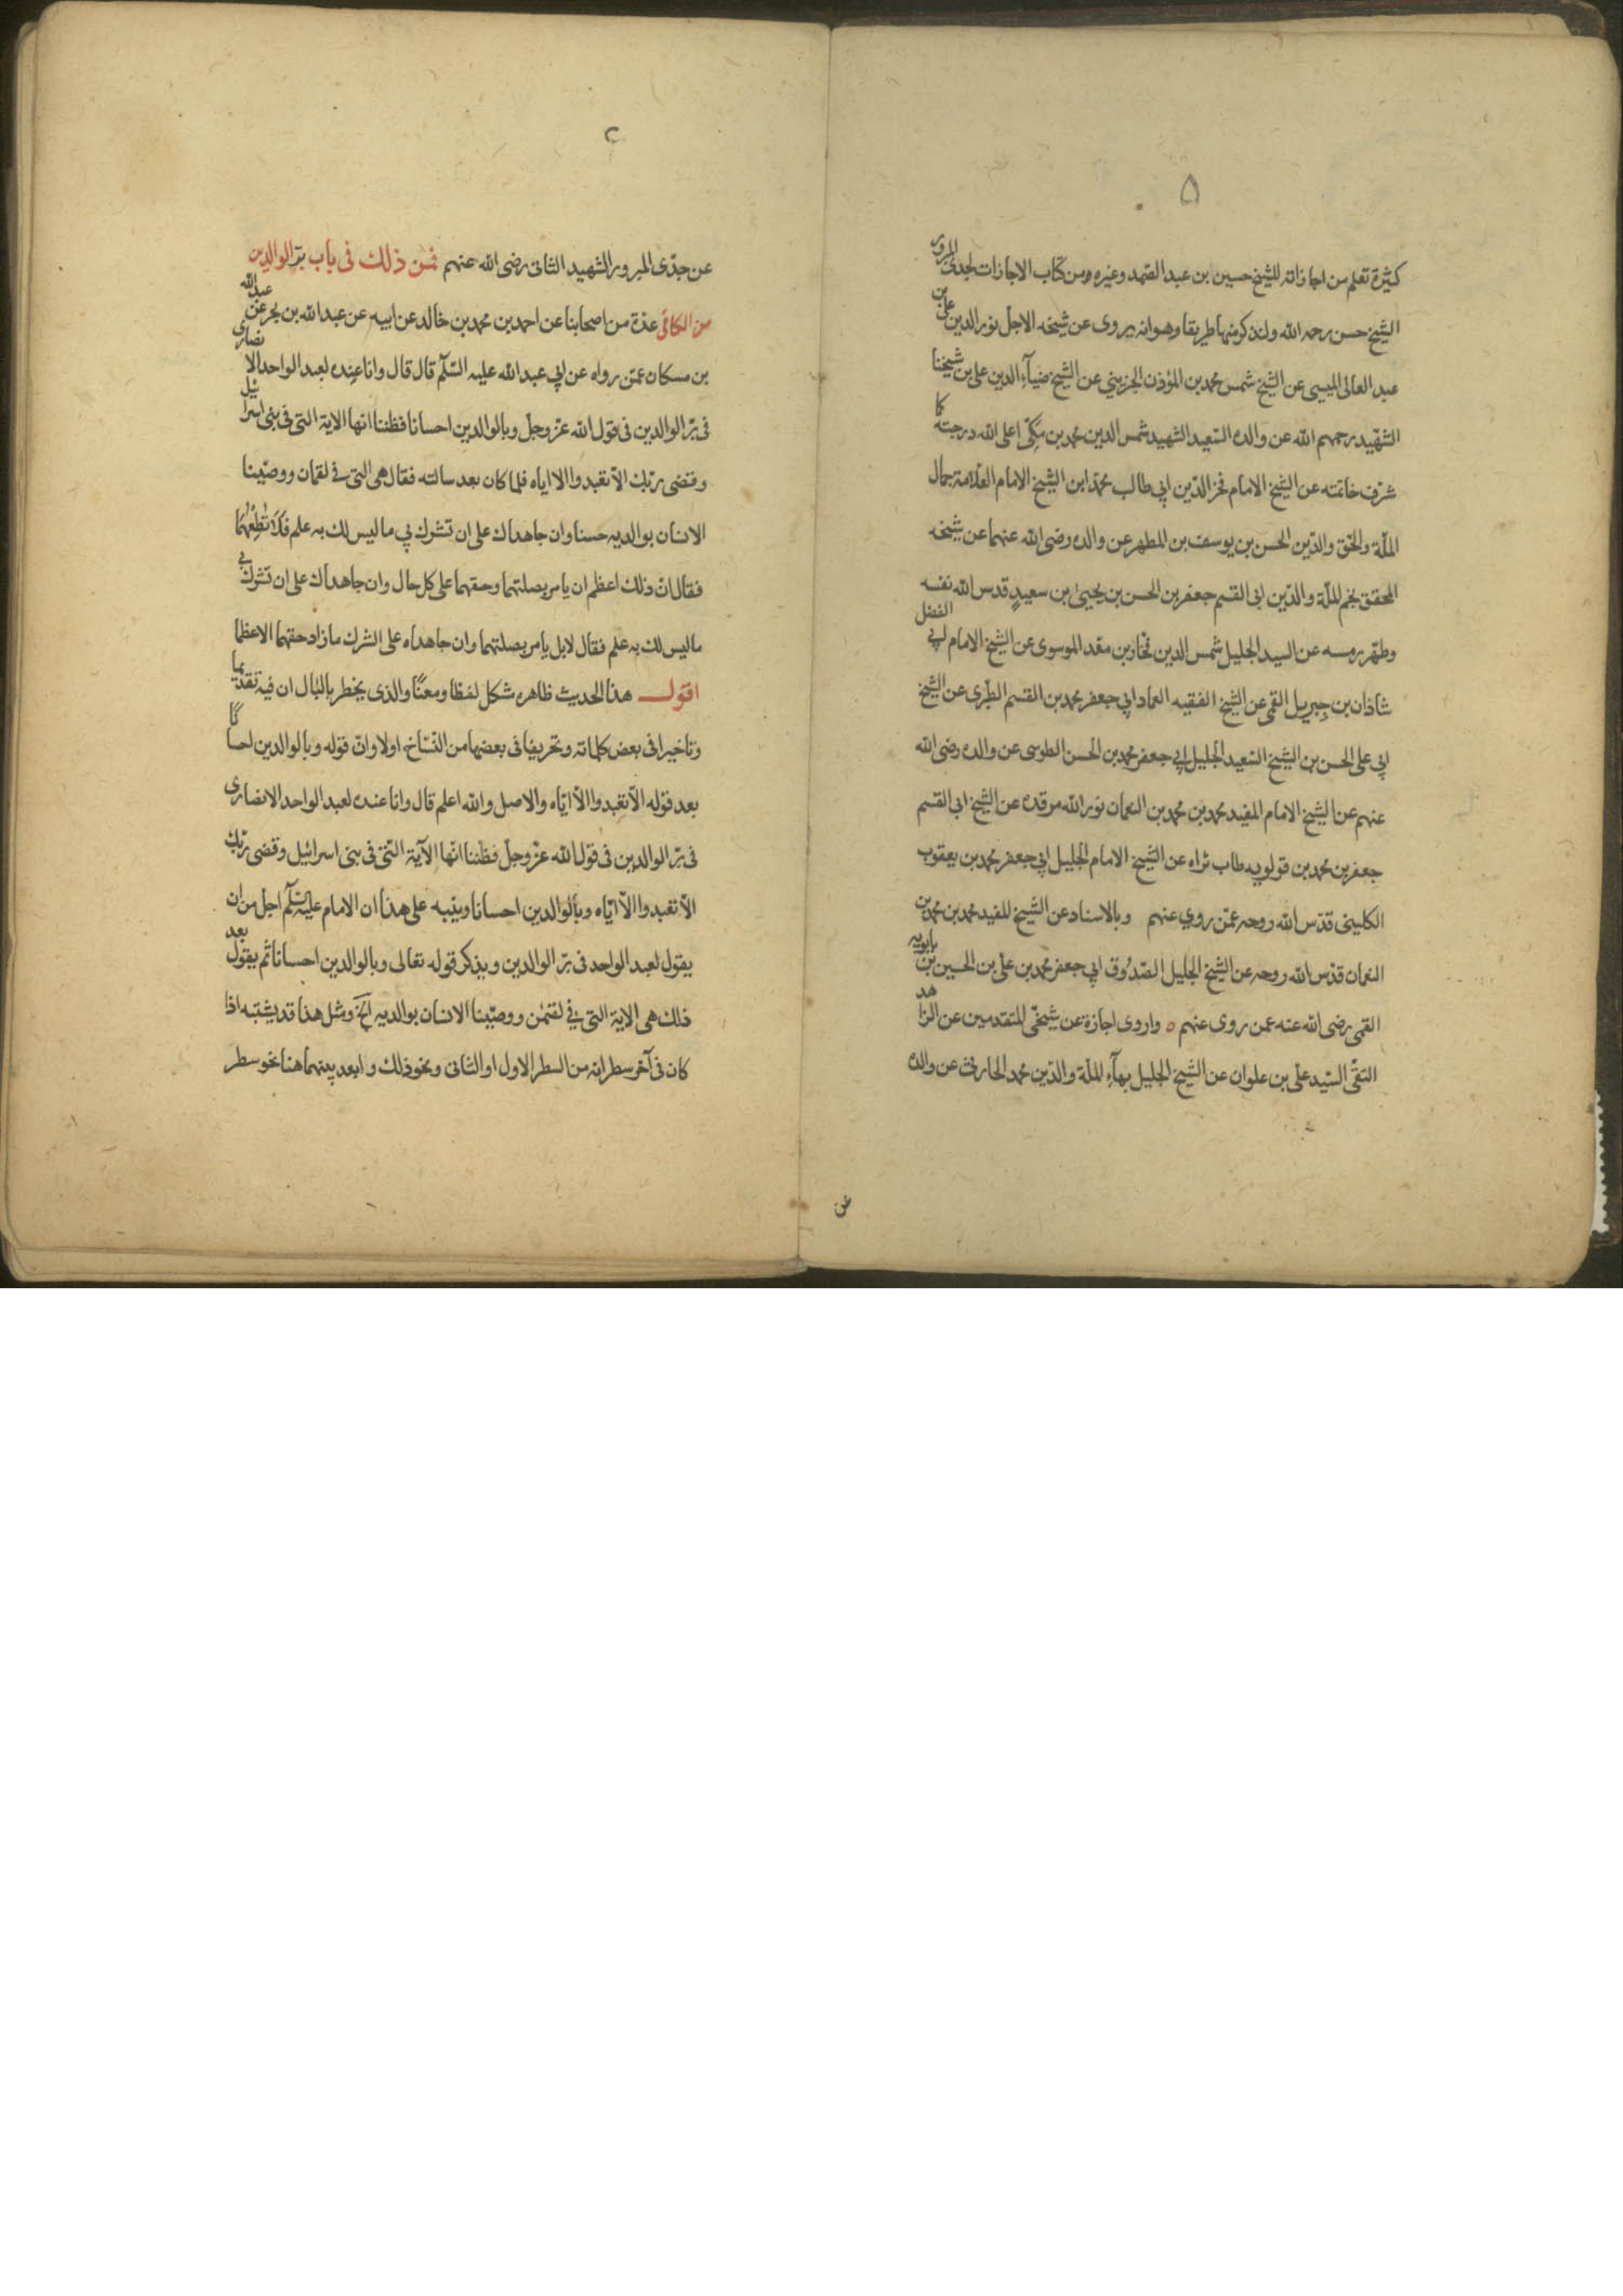 ۵
كثيرة تعلم من اجازاته للشيخ حسين بن عبد الصمد وغيره ومن كتاب الاجازات لجدى المبرور
الشيخ حسن رحمه الله ولنذكر منها طريقا وهو انه يروى عن شيخه الاجل نور الدين على بن
عبد العالى الميسى عن الشيخ شمس محمد بن المؤذن الجزينى عن الشيخ ضيآء الدين على بن شيخنا
الشهيد رحمهم الله عن والده السعيد الشهيد شمس الدين محمد بن مكى اعلى الله درجته كا
شرف خاتمته عن الشيخ الامام فخر الدين ابي طالب محمد ابن الشيخ الامام العلامة جمال
الملة والحق والدين الحسن بن يوسف بن المطهر عن والده رضى الله عنهما عن شيخه
المحقق نجم الملة والدين ابى القسم جعفر بن الحسن بن يحيى بن سعيد قدس الله نفسه
وطهر رمسه عن السيد الجليل شمس الدين فخار بن معد الموسوى عن الشيخ الامام ابي الفضل
شاذان بن جبريل القمى عن الشيخ الفقيه العماد ابي جعفر محمد بن القسم الطبرى عن الشيخ
ابي على الحسن بن الشيخ السعيد الجليل ابي جعفر محمد بن الحسن الطوسى عن والده رضى الله
عنهم عن الشيخ الامام المفيد محمد بن محمد بن النعمان نور الله مرقده عن الشيخ ابى القسم
جعفر بن محمد بن قولويه طاب ثراه عن الشيخ الامام الجليل ابي جعفر محمد بن يعقوب
الكلينى قدس الله روحه عمن روي عنهم وبالاسناد عن الشيخ المفيد محمد بن محمد بن
النعمان قدس الله روحه عن الشيخ الجليل الصدوق ابي جعفر محمد بن على بن الحسين بن بابويه
القمى رضى الله عنه عمن روى عنهم ه واروى اجازة عن شيخى المتقدمين عن الزاهد
التقى السيد على بن علوان عن الشيخ الجليل بهآء الملة والدين محمد الحارثى عن والده
عن
عن جدى المبرور الشهيد الثانى رضى الله عنهم فمن ذلك فى باب بر الوالدين
من الكافى عدة من اصحابنا عن احمد بن محمد بن خالد عن ابيه عن عبد الله بن بحر عن عبد الله
بن مسكان عمن رواه عن ابي عبد الله عليه السلم قال قال وانا عنده لعبد الواحد الانصارى
فى بر الوالدين فى قول الله عز وجل وبالوالدين احسانا فظننا انها الاية التى فى بنى اسرائيل
وقضى ربك الا تعبدوا الا اياه فلما كان بعد سالته فقال هى التى فى لقمان ووصينا
الانسان بوالديه حسنا وان جاهداك على ان تشرك بي ما ليس لك به علم فلا تطعهما
فقال ان ذلك اعظم ان يامر بصلتهما وحقهما على كل حال وان جاهداك على ان تشرك بي
ما ليس لك به علم فقال لا بل يامر بصلتهما وان جاهداه على الشرك ما زاد حقهما الا عظما
اقول هذا الحديث ظاهره مشكل لفظا ومعنًا والذى يخطر بالبال ان فيه تقديما
وتاخيرا فى بعض كلماته وتحريفا فى بعضها من النساخ اولا وان قوله وبالوالدين احسانا
بعد قوله الا تعبدوا الا اياه والاصل والله اعلم قال وانا عنده لعبد الواحد الانصارى
فى بر الوالدين فى قول الله عز وجل فظننا انها الآية التى فى بنى اسرائيل وقضى ربك
الا تعبدوا الا اياه وبالوالدين احسانا وينبه على هذا ان الامام عليه السلم اجل من ان
يقول لعبد الواحد فى بر الوالدين ويذكر قوله تعالى وبالوالدين احسانا ثم يقول بعد
ذلك هى الاية التى في لقمن ووصينا الانسان بوالديه الخ ومثل هذا قد يشتبه اذا
كان فى آخر سطر انه من السطر الاول او الثانى ونحو ذلك وابعد بينهما هنا نحو سطر